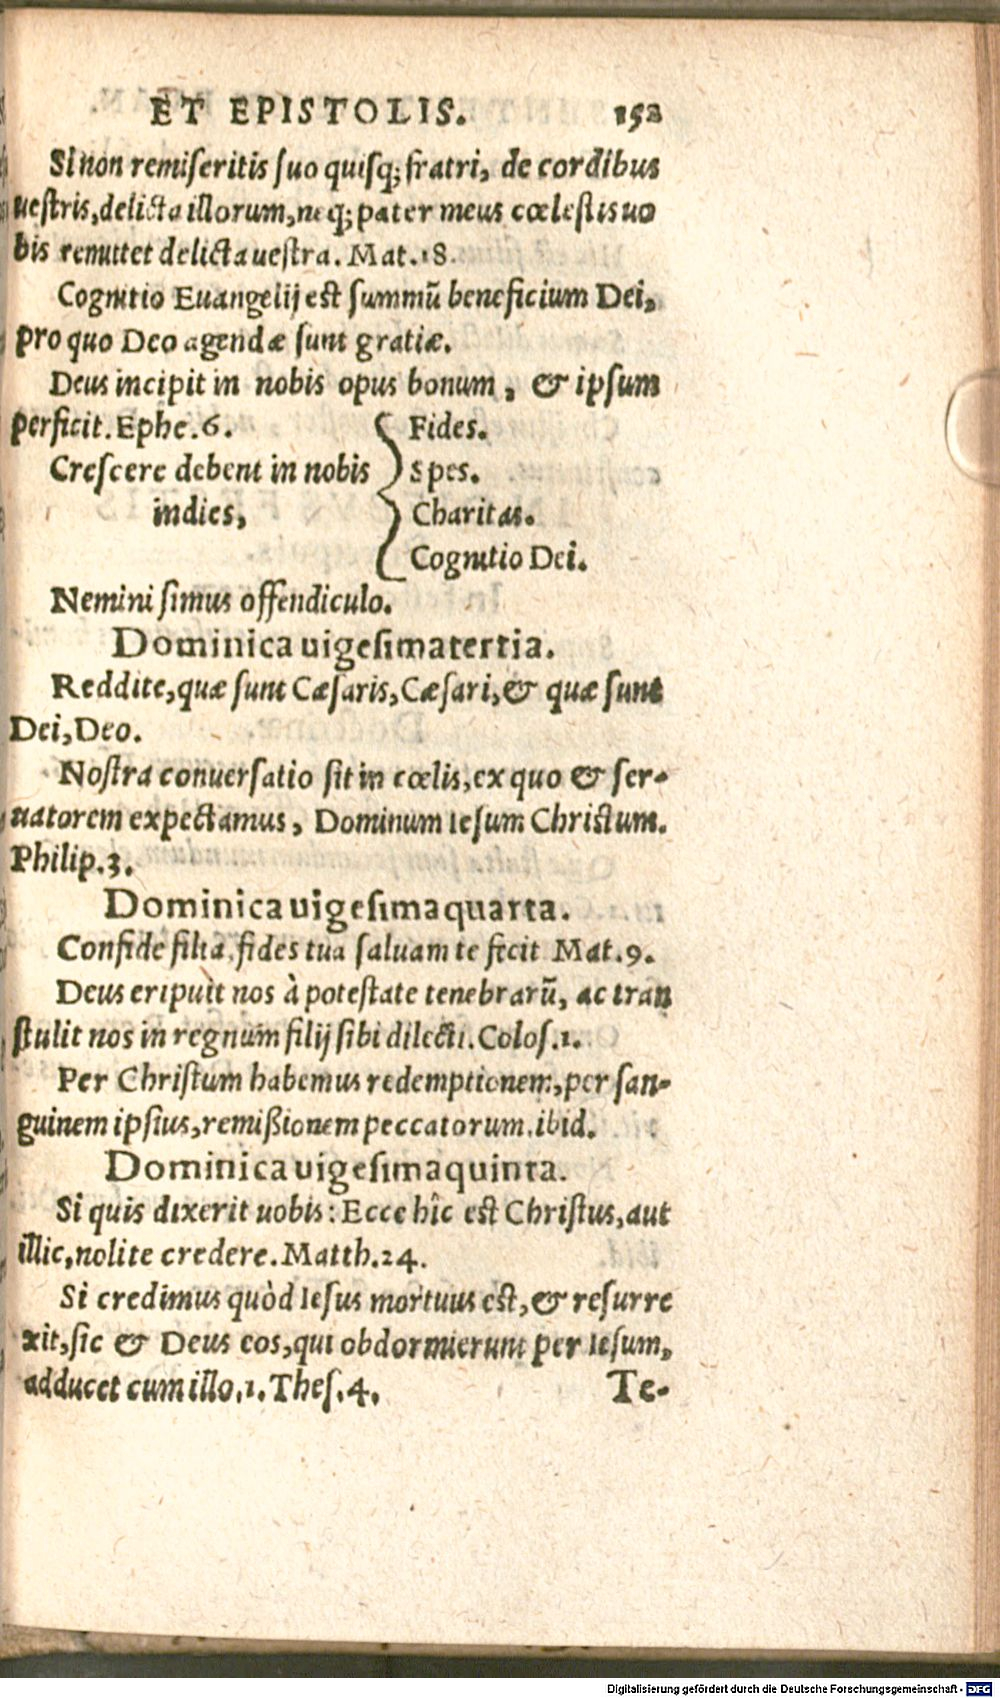 ET EPISTOLIS. 152
Si non remiseritis suo quisq; fratri, de cordibus
uestris, delicta illorum, neq; pater meus cœlestis uo
bis remittet delicta uestra. Mat. 18.
Cognitio Euangelij est summũ beneficium Dei,
pro quo Deo agendæ sunt gratiæ.
Deus incipit in nobis opus bonum, & ipsum
perficit. Ephe. 6.
Crescere debent in nobis
indies,
Fides.
Spes.
Charitas.
Cognitio Dei.
Nemini simus offendiculo.
Dominica uigesimatertia.
Reddite, quæ sunt Cæsaris, Cæsari, & quæ sunt
Dei, Deo.
Nostra conuersatio sit in cœlis, ex quo & ser-
uatorem expectamus, Dominum Iesum Christum.
Philip. 3.
Dominica uigesimaquarta.
Confide filia, fides tua saluam te fecit Mat. 9.
Deus eripuit nos à potestate tenebrarũ, ac tran
stulit nos in regnum filij sibi dilecti. Colos. 1.
Per Christum habemus redemptionem, per san-
guinem ipsius, remißionem peccatorum. ibid.
Dominica uigesimaquinta.
Si quis dixerit uobis: Ecce hîc est Christus, aut
illic, nolite credere. Matth. 24.
Si credimus quòd Iesus mortuus est, & resurre
xit, sic & Deus eos, qui obdormierunt per Iesum,
adducet cum illo. 1. Thes. 4.
Te-
Digitalisierung gefördert durch die Deutsche Forschungsgemeinschaft - DFG